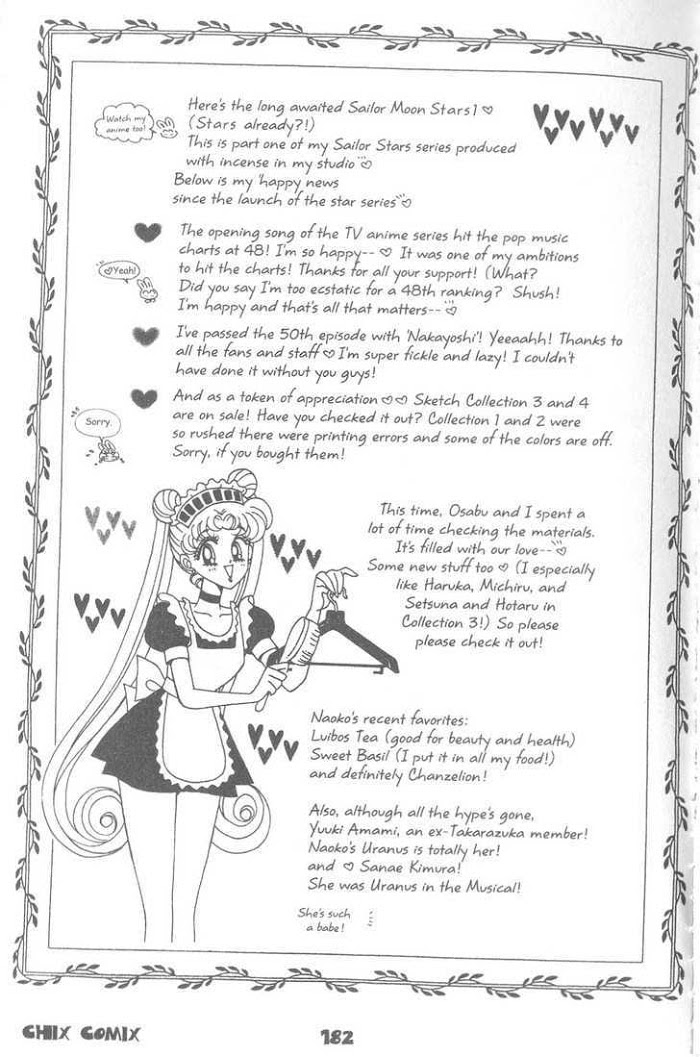 Here's the long awaited Sailor Moon Stars1♡
(Stars already?!)
This is part one of my Sailor Stars series produced
with incense in my studio♡
Below is my 'happy news
since the launch of the star series♡
Watch my
anime too!
The opening song of the TV anime series hit the pop music
charts at 48! I'm so happy--♡ It was one of my ambitions
to hit the charts! Thanks for all your support! (What?
Did you say I'm too ecstatic for a 48th ranking? Shush!
I'm happy and that's all that matters--♡
♡Yeah!
I've passed the 50th episode with 'Nakayoshi'! Yeeaahh! Thanks to
all the fans and staff♡I'm super fickle and lazy! I couldn't
have done it without you guys!
And as a token of appreciation♡♡ Sketch Collection 3 and 4
are on sale! Have you checked it out? Collection 1 and 2 were
so rushed there were printing errors and some of the colors are off.
Sorry, if you bought them!
Sorry.
This time, Osabu and I spent a
lot of time checking the materials.
It's filled with our love--♡
Some new stuff too♡(I especially
like Haruka, Michiru, and
Setsuna and Hotaru in
Collection 3!) So please
please check it out!
Naoko's recent favorites:
Luibos Tea (good for beauty and health)
Sweet Basil (I put it in all my food!)
and definitely Chanzelion!
Also, although all the hype's gone,
Yuuki Amami, an ex-Takarazuka member!
Naoko's Uranus is totally her!
and ♡ Sanae Kimura!
She was Uranus in the Musical!
She's such
a babe!
CHIX COMIX
182